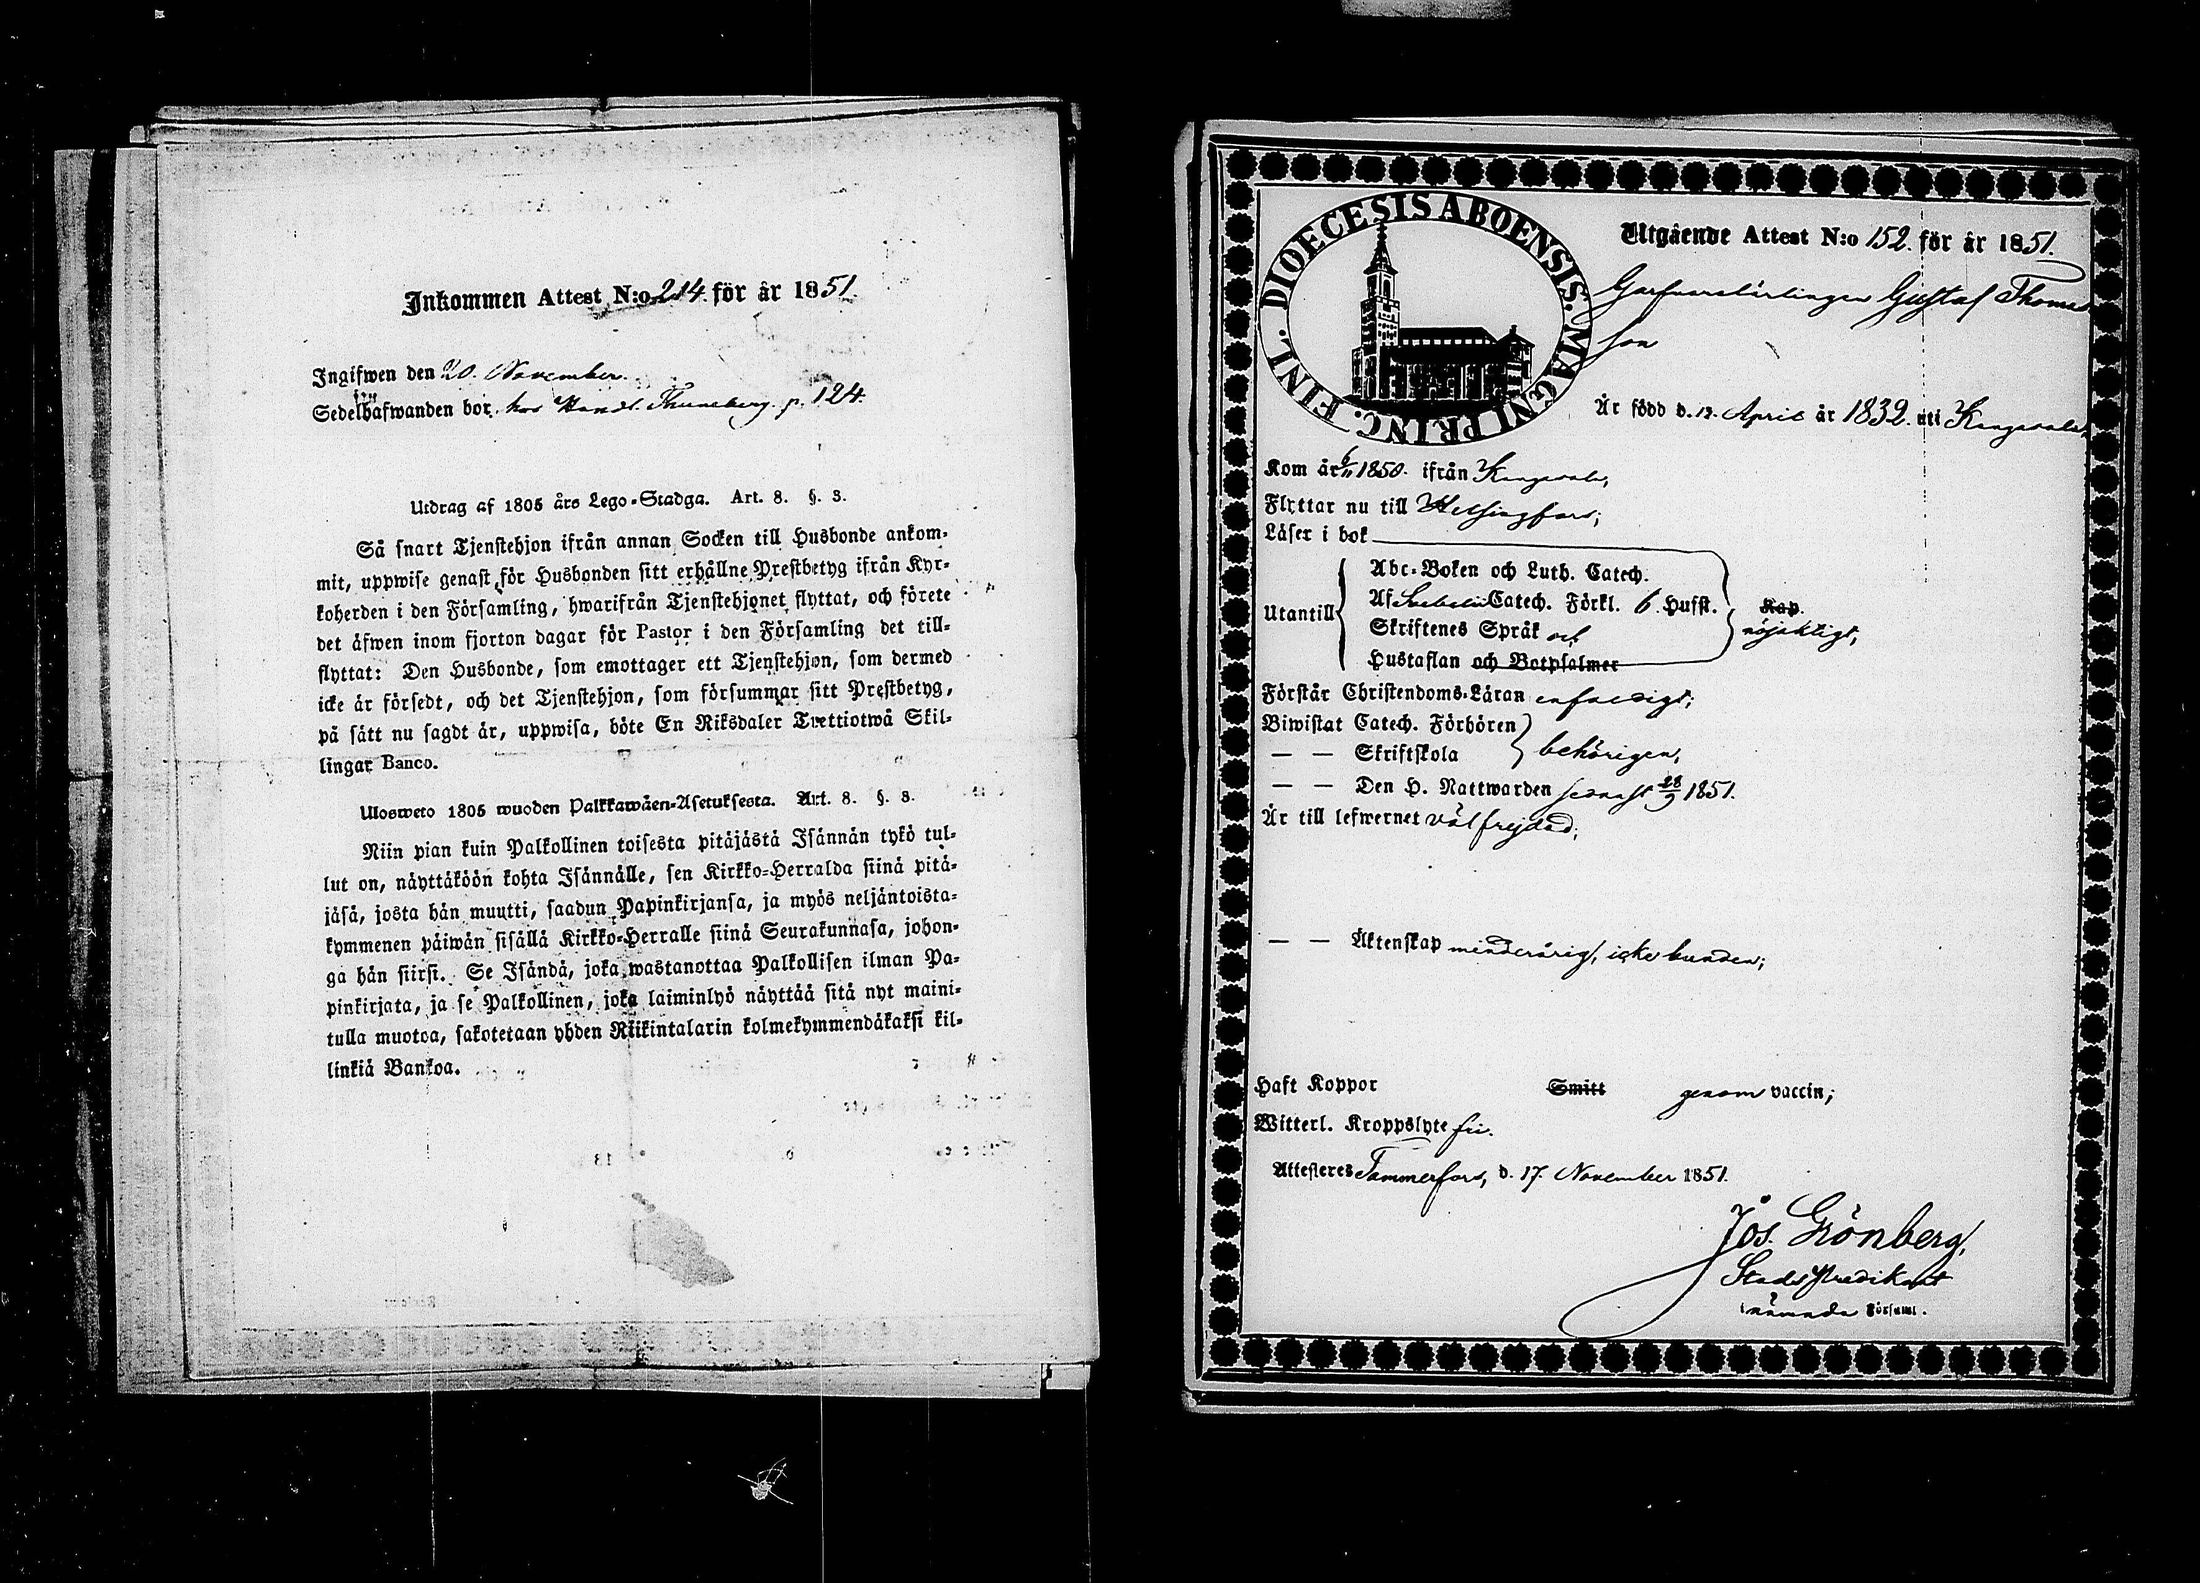 Inkommen Attest N:o 214. för år 1851.
Ingifwen den 20. November.
Sedelhafwanden bor hos Handl. Thuneberg. p. 124.
Utdrag af 1805 års Lego-Stadga. Art. 8. §. 3.
Så snart Tjenstehjon ifrån annan Socken till Husbonde ankom-
mit, uppwise genast för Husbonden sitt erhållne Prestbetyg ifrån Kyr-
koherden i den Församling, hwarifrån Tjenstehjonet flyttat, och förete
det äfwen inom fjorton dagar för Pastor i den Församling det till-
flyttat: Den Husbonde, som emottager ett Tjenstehjon, som dermed
icke är försedt, och det Tjenstehjon, som försummar sitt Prestbetyg,
på sätt nu sagdt är, uppwisa, böte En Riksdaler Trettiotwå Skil-
lingar Banco.
Ulosweto 1805 wuoden Palkkawäen-Asetuksesta. Art. 8. §. 3.
Niin pian kuin Palkollinen toisesta pitäjästä Isännän tykö tul-
lut on, näyttäköön kohta Isännälle, sen Kirkko-Herralda siinä pitä-
jäsä, josta hän muutti, saadun Papinkirjansa, ja myös neljäntoista-
kymmenen päiwän sisällä Kirkko-Herralle siinä Seurakunnasa, johon-
ga hän siirsi. Se Isändä, joka wastanottaa Palkollisen ilman Pa-
pinkirjata, ja se Palkollinen, joka laiminlyö näyttää sitä nyt maini-
tulla muotoa, sakotetaan yhden Riikintalarin kolmekymmendäkaksi kil-
linkiä Bankoa.
FINL. DIOECESIS ABOENSIS. MAGNI PRINC.
Utgående Attest N:o 152. för år 1851.
Garfvarelärlingen Gustaf Thomas
son
Är född d. 12. April år 1832. uti Kangasala.
Kom år 6/11 1850. ifrån Kangasala,
Flyttar nu till Helsingfors;
Läser i bok
Abc-Boken och Luth. Catech.
Utantill Af Svebelii Catech. Förkl. 6. Hufst. Kap.
Skriftenes Språk och nöjaktigt,
Hustaflan och Botpsalmer
Förstår Christendoms-Läran enfaldigt;
Biwistat Catech. Förhören
— — Skriftskola behörigen,
— — Den H. Nattwarden senast 28/9 1851.
Är till lefwernet välfrejdad;
— — Äktenskap minderårig, icke bunden;
Haft Koppor Smitt genom vaccin;
Witterl. Kroppslyte fri.
Attesteres Tammerfors, d. 17. November 1851.
Jos. Grönberg,
Stads Predikant
i nämnda Församl.